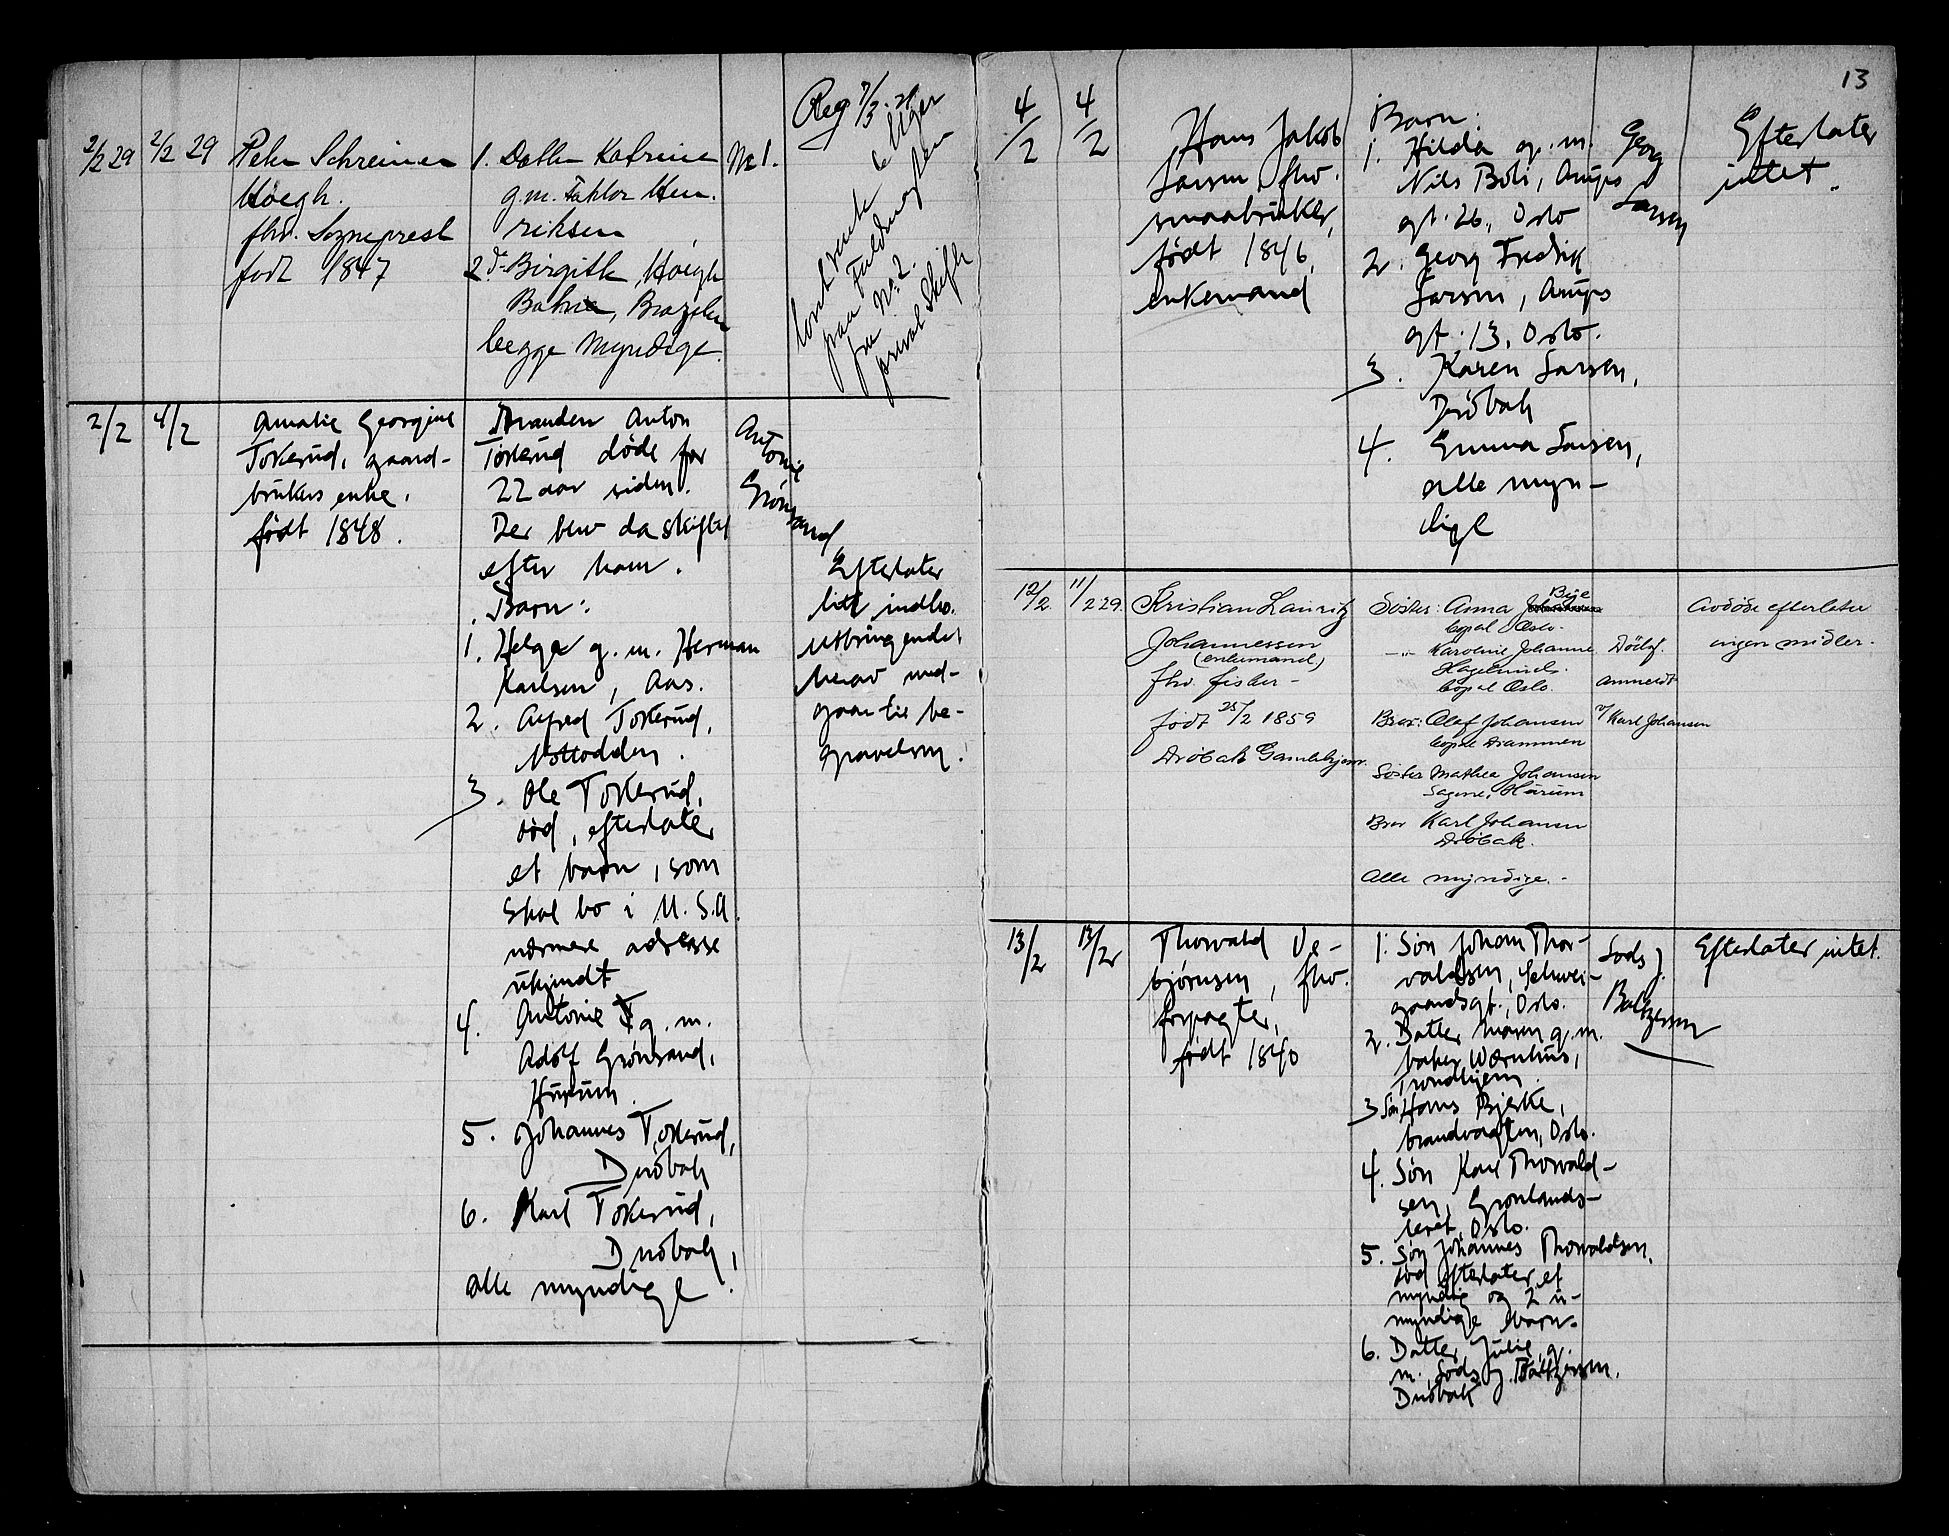 2/2 29
2/2 29
Peter Schreiner
Høegh.
fhv. Sogneprest
født 1847
1. Datter Katrine
g.m. Faktor Hen-
riksen
2. d- Birgitte Høegh
Bahia, Brazilien
begge myndige.
No 1.
Reg 7/3.29
paa Fuldmagten
fra No 2.
privat Skifte
2/2
4/2
Amalie Georgine
Tokerud, gaard-
brukers enke,
født 1848.
Manden Anton
Tokerud døde for
22 aar siden.
Der blev da skiftet
efter ham.
Barn:
1. Helga g. m. Herman
Karlsen, Aas.
2. Alfred Tokerud,
Nottodden.
3. Ole Tokerud,
død, efterlater
et barn, som
skal bo i U.S.A.
nærmere adresse
ukjendt
4. Antonie g. m.
Adolf Grönsand,
Hurum.
5. Johannes Tokerud,
Drøbak
6. Karl Tokerud,
Drøbak,
alle myndige.
Antonie
Grönsand
Efterlater
litt indbo.
utbringendet
herav med-
gaar til be-
gravelsen.
13
4/2
4/2
Hans Jakob
Larsen, fhv.
smaabruker,
født 1846,
enkemand
Barn:
1. Hilda g. m.
Nils Boli, Arups
gt. 26., Oslo
2. Georg Fredrik
Larsen, Arups
gt. 13, Oslo.
3. Karen Larsen,
Drøbak
4. Emma Larsen,
alle myn-
dige
Georg
Larsen
Efterlater
intet.
12/2.
11/2 29.
Kristian Lauritz
Johannessen
(enkemand)
fhv. fisker -
født 25/2 1859
Drøbak Gamlehjem.
Søster: Anna Bye
bopel Oslo.
-"- Karoline Johanne
bopel Oslo.
Bror: Olaf Johansen
bopel Drammen
Søster Mathea Johansen
Sagene, Hurum
Bror Karl Johansen
Drøbak.
Alle myndige. -
Dödsf.
anmeldt
v/ Karl Johansen
Avdöde efterlater
ingen midler.
13/2
13/2
Thorvald Ve-
bjørnsen, fhv.
forpagter,
født 1840
1. Søn Johan Thor-
valdsen, Schwei-
gaardsgt., Oslo.
2. Datter Maren g. m.
baker Wærnhus,
Trondhjem.
3 Søn Hans Bjerke,
brandvagten, Oslo.
4. Søn Karl Thorvald-
sen, Grønlands-
leret, Oslo.
5. Søn Johannes Thorvaldsen,
død efterlater et
myndig og 2 u-
myndige barn.
6. Datter Julie, g.
m. Lods J. Baltzersen.
Drøbak
Lods J.
Baltzersen
Efterlater intet.